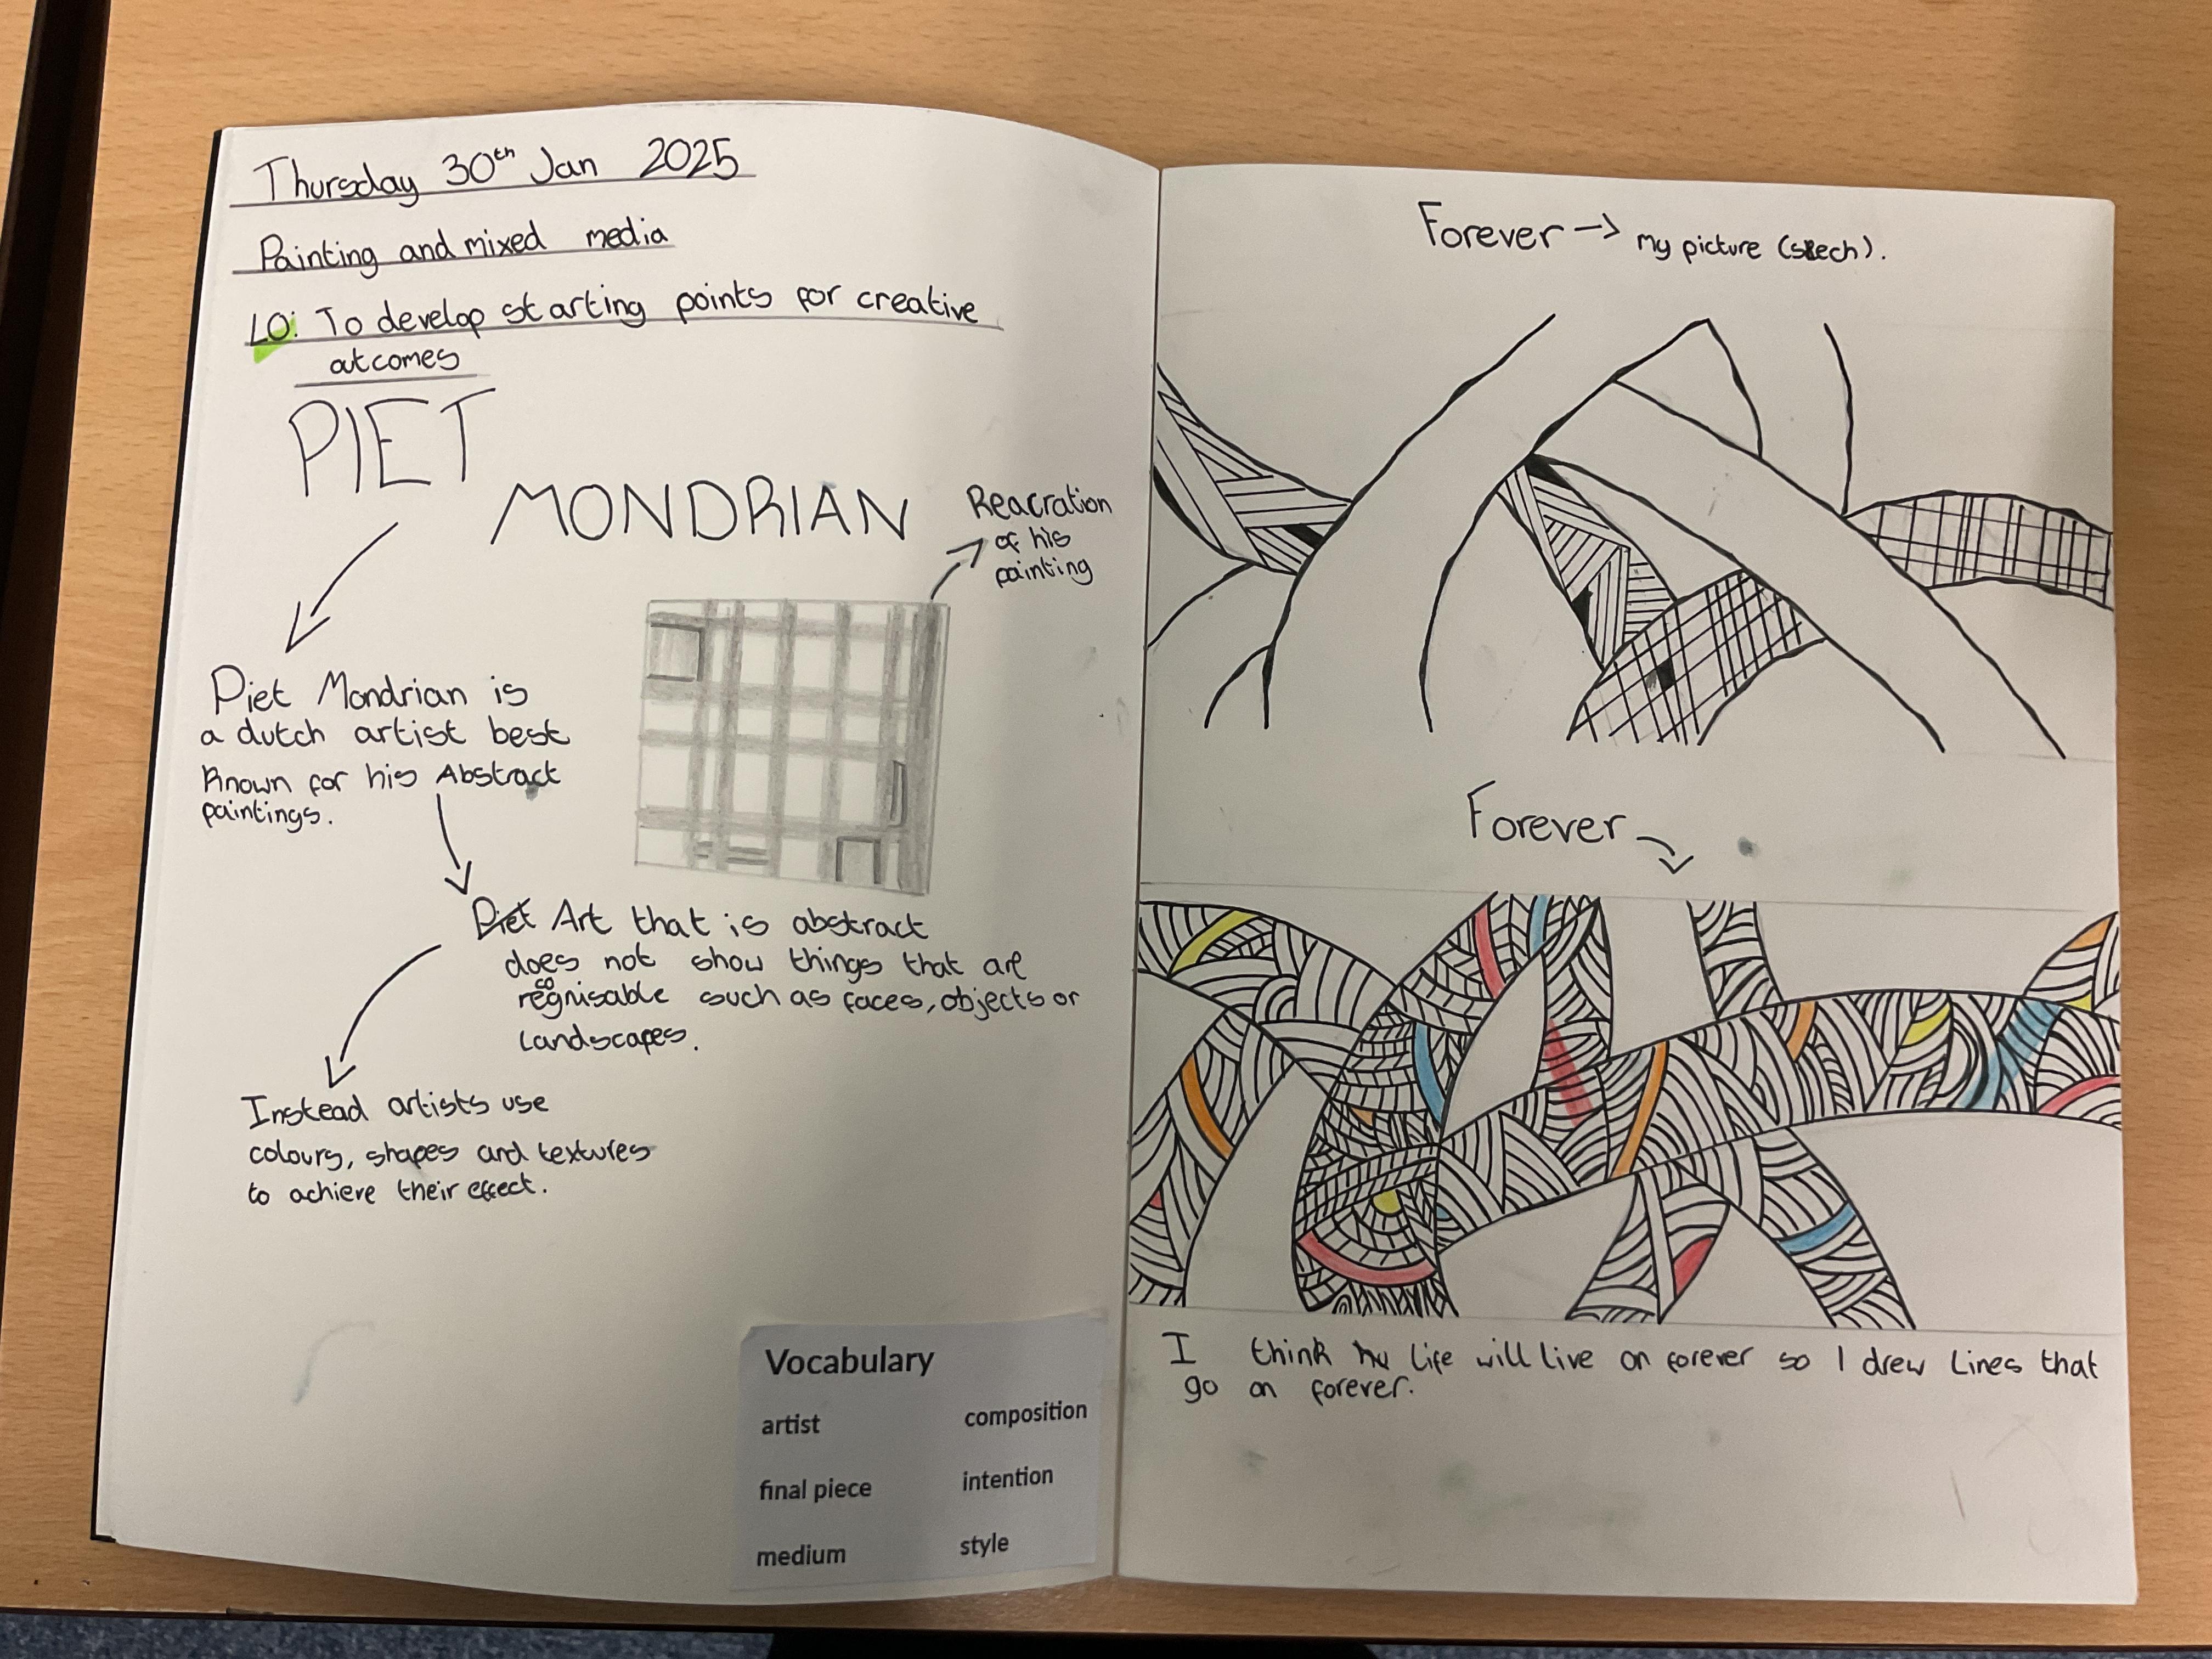 Thursday 30th Jan 2025
Painting and mixed media
LO: To develop starting points for creative
outcomes
PIET
MONDRIAN
Reacration
of his
painting
Piet Mondrian is
a dutch artist best
known for his Abstract
paintings.
Piet Art that is abstract
does not show things that are
recognisable such as faces, objects or
landscapes.
Instead artists use
colours, shapes and textures
to achieve their effect.
Vocabulary
artist composition
final piece intention
medium style
Forever → my picture
Forever
I think my life will live on forever so I drew lines that
go on forever.